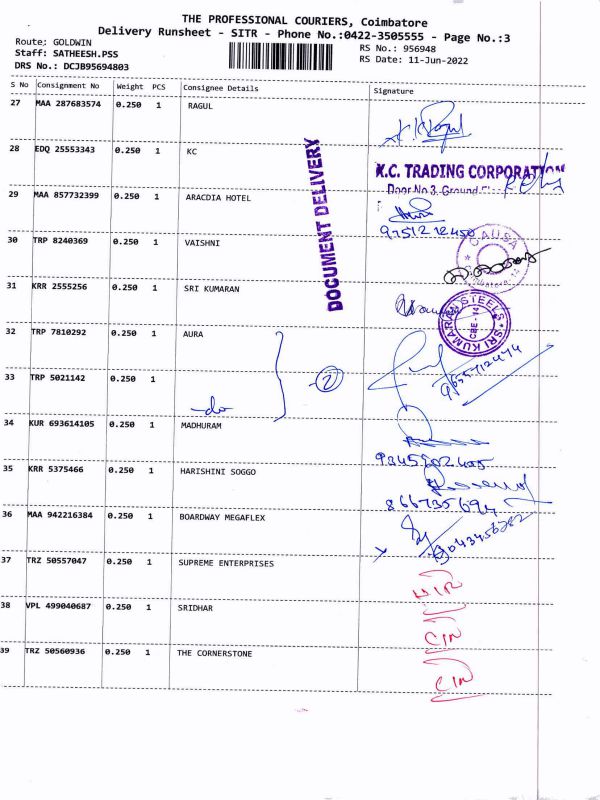 THE PROFESSIONAL COURIERS, Coimbatore
Delivery Runsheet - SITR - Phone No.:0422-3505555 - Page No.:3
Route: GOLDWIN
Staff: SATHEESH.PSS
DRS No.: DCJB95694803
RS No.: 956948
RS Date: 11-Jun-2022
S No Consignment No Weight PCS Consignee Details Signature
27 MAA 287683574 0.250 1 RAGUL
28 EDQ 25553343 0.250 1 KC
K.C. TRADING CORPORATION
Door No.3, Ground
DOCUMENT DELIVERY
29 MAA 857732399 0.250 1 ARACDIA HOTEL
9751212450
30 TRP 8240369 0.250 1 VAISHNI
CAUSA
31 KRR 2555256 0.250 1 SRI KUMARAN
SRI KUMARAN STEELS
CBE - 14
32 TRP 7810292 0.250 1 AURA
2
33 TRP 5021142 0.250 1
-do-
34 KUR 693614105 0.250 1 MADHURAM
35 KRR 5375466 0.250 1 HARISHINI SOGGO
8667735694
36 MAA 942216384 0.250 1 BOARDWAY MEGAFLEX
37 TRZ 50557047 0.250 1 SUPREME ENTERPRISES
38 VPL 499040687 0.250 1 SRIDHAR
CIN
39 TRZ 50560936 0.250 1 THE CORNERSTONE
CIN